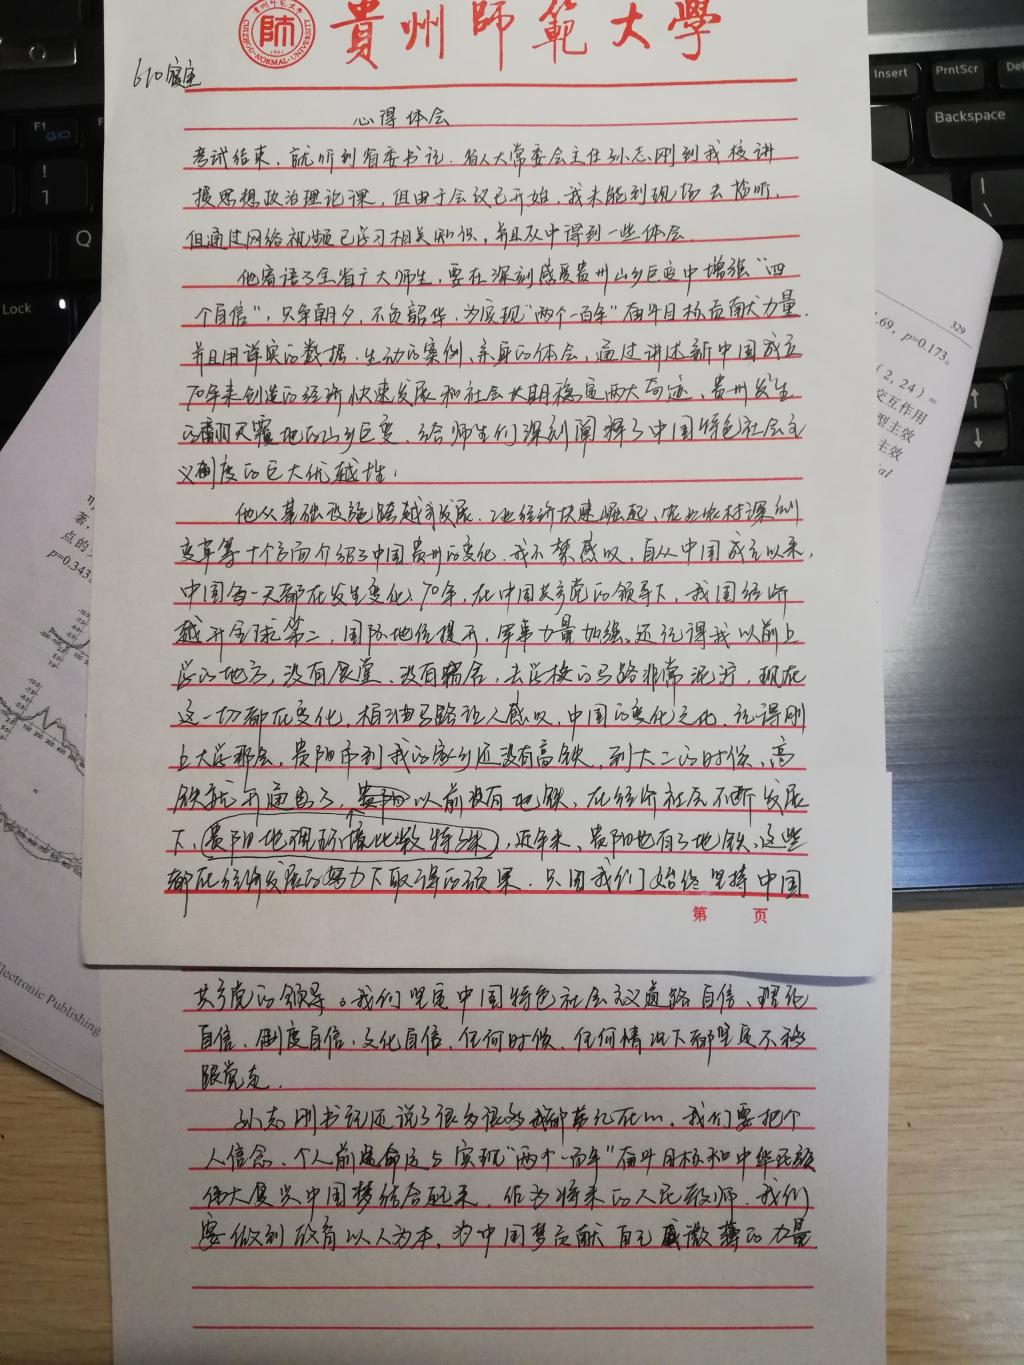 貴州師範大學
GUIZHOU NORMAL UNIVERSITY
610寝室
心得体会
考试结束，就听到省委书记、省人大常委会主任孙志刚到我校讲
授思想政治理论课，但由于会议已开始，我未能到现场去聆听，
但通过网络视频已学习相关知识，并且从中得到一些体会
他寄语了全省广大师生，要在深刻感受贵州山乡巨变中增强“四
个自信”，只争朝夕，不负韶华，为实现“两个一百年”奋斗目标贡献力量，
并且用详实的数据、生动的案例、亲身的体会，通过讲述新中国成立
70年来创造的经济快速发展和社会长期稳定两大奇迹、贵州发生
的翻天覆地的山乡巨变，给师生们深刻阐释了中国特色社会主
义制度的巨大优越性，
他从基础设施跨越式发展、工业经济快速崛起、农业农村深刻
变革等十个方面介绍了中国贵州的变化，我不禁感叹，自从中国成立以来，
中国每一天都在发生变化，70年，在中国共产党的领导下，我国经济
越升全球第二，国际地位提升，军事力量加强，还记得我以前上
学的地方，没有食堂、没有宿舍，去学校的马路非常泥泞，现在
这一切都在变化，柏油马路让人感叹，中国的变化之化，记得刚
上大学那会，贵阳市到我的家乡还没有高铁，到大二的时候，高
铁就开通了，以前没有地铁，在经济社会不断发展
下，贵阳地理环境比较特殊，近年来，贵阳也有了地铁，这些
都在经济发展的努力下取得的硕果，只因我们始终坚持中国
第 页
共产党的领导。我们坚定中国特色社会主义道路自信、理论
自信、制度自信、文化自信，任何时候、任何情况下都坚定不移
跟党走．
孙志刚书记还说了很多很多我都牢记在心，我们要把个
人信念、个人前途命运与实现“两个一百年”奋斗目标和中华民族
伟大复兴中国梦结合起来，作为将来的人民教师，我们
要做到教育以人为本，为中国梦贡献自己微薄的力量
Insert
PrntScr
Backspace
F1
!
1
Q
Lock
329
.69, p=0.173。
(2, 24) =
交互作用
型主效
主效
p=0.343
点的
Electronic Publishing